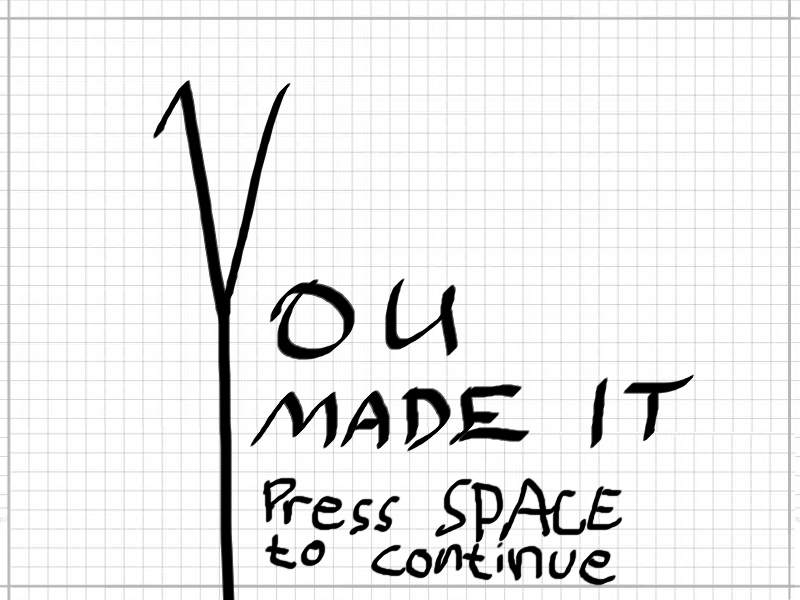 YOU
MADE IT
Press SPACE
to continue